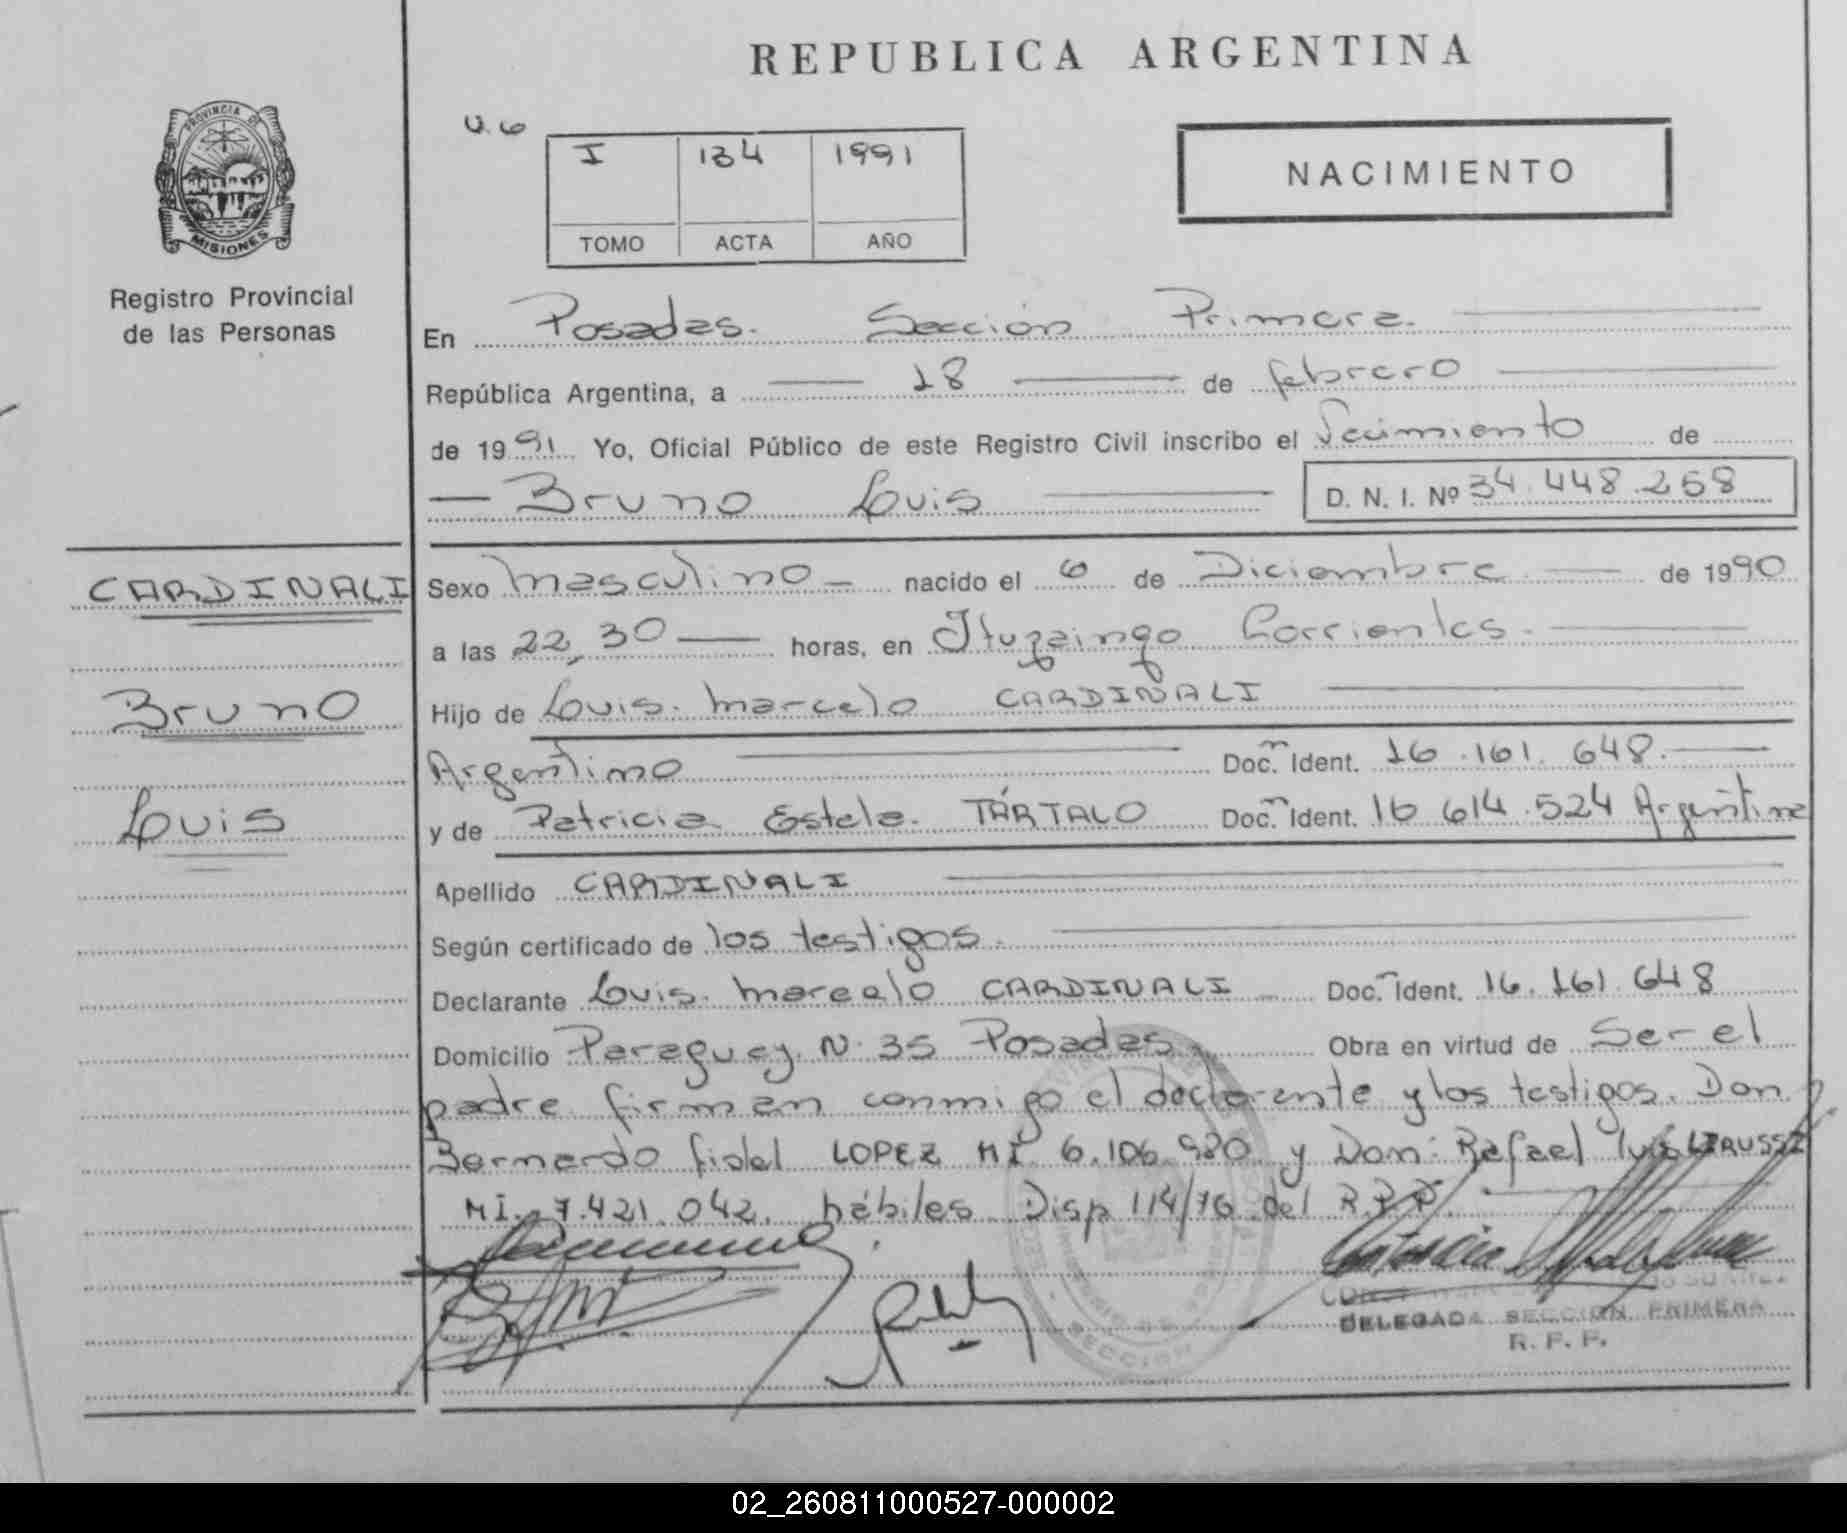 REPUBLICA ARGENTINA
PROVINCIA DE
MISIONES
Registro Provincial
de las Personas
I 134 1991
TOMO ACTA AÑO
NACIMIENTO
En Posadas. Sección Primera.
República Argentina, a 18 de febrero
de 1991 Yo, Oficial Público de este Registro Civil inscribo el de
Bruno Luis D. N. I. Nº 34.448.258
CARDINALI
Bruno
Luis
Sexo masculino nacido el 6 de Diciembre de 1990
a las 22,30 horas, en Ituzaingo Corrientes.
Hijo de Luis. marcelo CARDINALI
Argentino Doc. Ident. 16.161.648.
y de Patricia Estela. TÁRTALO Doc. Ident. 16 614.524 Argentina
Apellido CARDINALI
Según certificado de los testigos.
Declarante Luis. marcelo CARDINALI Doc. Ident. 16.161.648
Domicilio Paraguay. N. 35 Posadas. Obra en virtud de Ser el
padre firman conmigo el declarante y los testigos. Don
Bernardo fidel LOPEZ MI 6.106.980 y Don: Rafael luis
MI. 7.421.042. hábiles Disp 114/76 del R.P.P.
DELEGADA SECCION PRIMERA
R. P. P.
SECCION
02_260811000527-000002